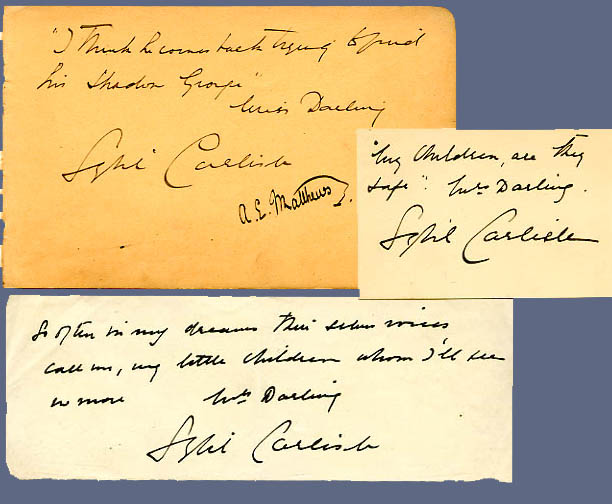 "I think he comes back trying to find
his shadow George"
Mrs Darling
Sybil Carlisle
A. E. Matthews
"My children, are they
safe". Mrs Darling.
Sybil Carlisle
So often in my dreams their silver voices
call me, my little children whom I'll see
no more Mrs Darling
Sybil Carlisle